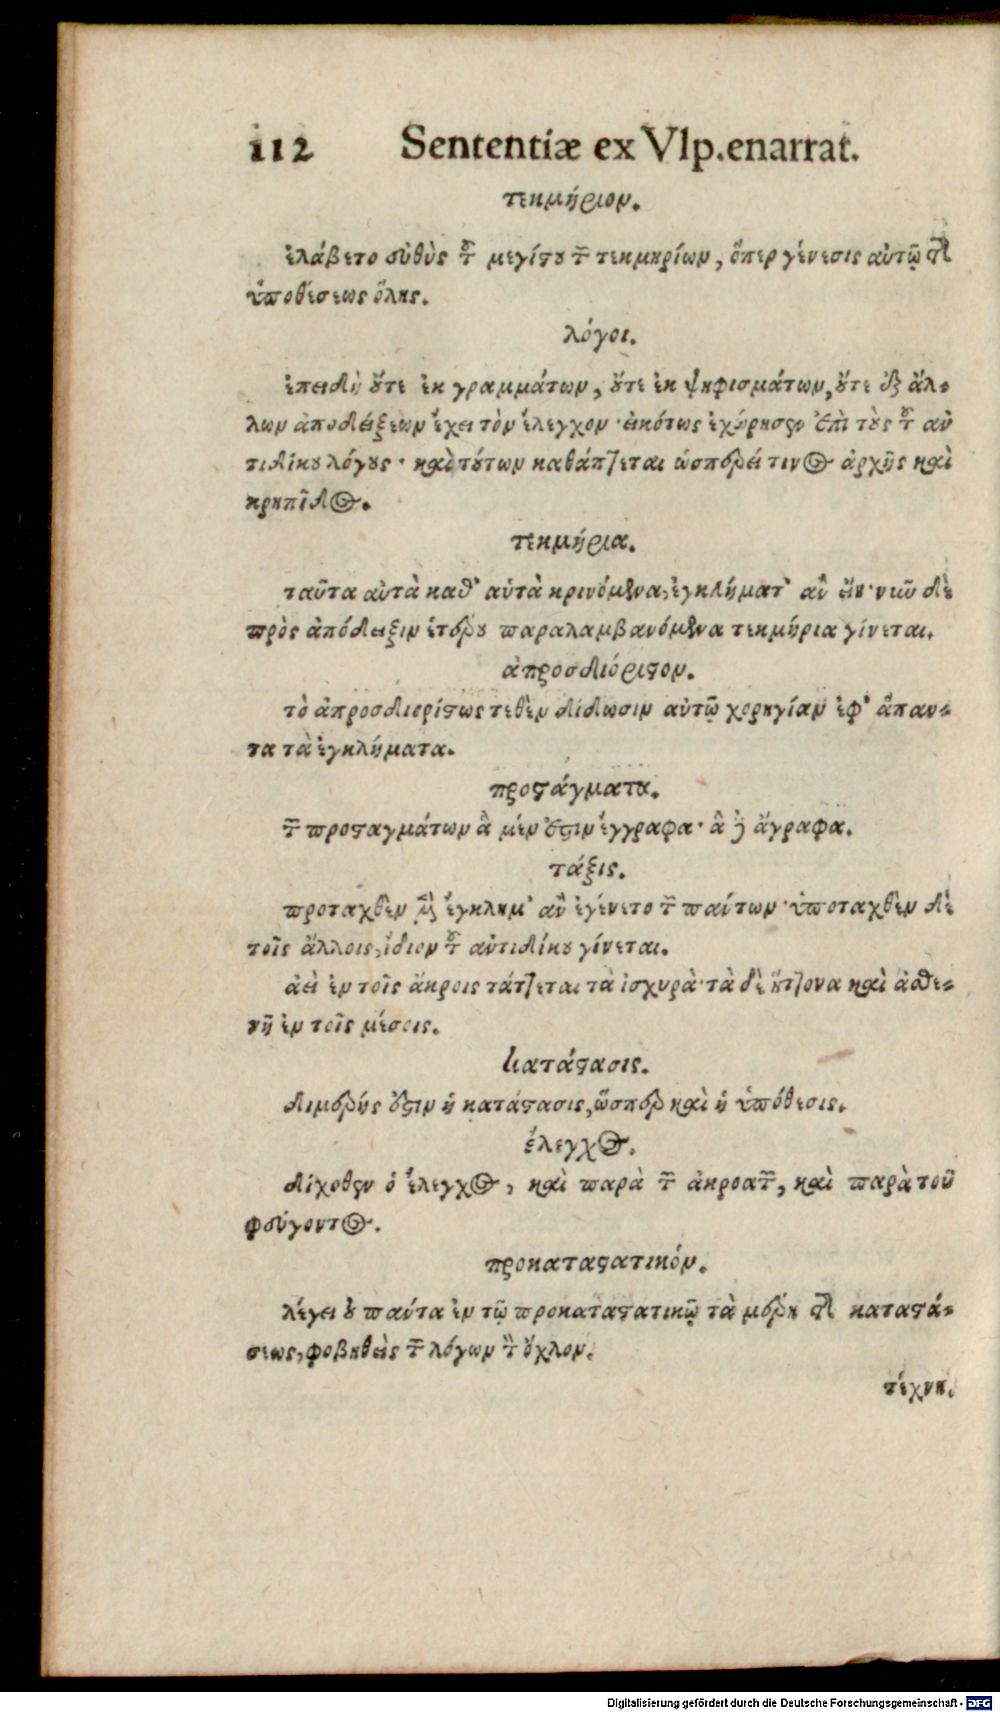 112 Sententiæ ex Vlp.enarrat.
τεκμήριον.
ἐλάβετο εὐθὺς τοῦ μεγίστου τῶν τεκμηρίων, ὅπερ γένεσις αὐτῷ τῆς
ὑποθέσεως ὅλης.
λόγοι.
ἐπειδὴ οὔτε ἐκ γραμμάτων, οὔτε ἐκ ψηφισμάτων, οὔτε ἐξ ἄλ-
λων ἀποδείξεων ἔχει τὸν ἔλεγχον· εἰκότως ἐχώρησεν ἐπὶ τοὺς τοῦ ἀν
τιδίκου λόγους· καὶ τούτων καθάπτεται ὡσπερεί τινος ἀρχῆς καὶ
κρηπῖδος.
τεκμήρια.
ταῦτα αὐτὰ καθ' αὑτὰ κρινόμενα, ἐγκλήματ' ἂν εἴη· νῦν δὲ
πρὸς ἀπόδειξιν ἑτέρου παραλαμβανόμενα τεκμήρια γίνεται.
ἀπροσδιόριστον.
τὸ ἀπροσδιορίστως τεθὲν δίδωσιν αὐτῷ χορηγίαν ἐφ' ἅπαν-
τα τὰ ἐγκλήματα.
προστάγματα.
τῶν προσταγμάτων ἃ μέν ἐστιν ἔγγραφα· ἃ δὲ ἄγραφα.
τάξις.
προταχθὲν μὲν ἔγκλημ' ἂν ἐγένετο τῶν πάντων· ὑποταχθὲν δὲ
τοῖς ἄλλοις, ἴδιον τοῦ ἀντιδίκου γίνεται.
ἀεὶ ἐν τοῖς ἄκροις τάττεται τὰ ἰσχυρὰ· τὰ δὲ ἥττονα καὶ ἀσθε-
νῆ ἐν τοῖς μέσοις.
κατάστασις.
διμερής ἐστιν ἡ κατάστασις, ὥσπερ καὶ ἡ ὑπόθεσις.
ἔλεγχος.
δίχοθεν ὁ ἔλεγχος, καὶ παρὰ τῶν ἀκροατῶν, καὶ παρὰ τοῦ
φεύγοντος.
προκαταστατικόν.
λέγει οὐ πάντα ἐν τῷ προκαταστατικῷ τὰ μέρη τῆς καταστά-
σεως, φοβηθεὶς τῶν λόγων τὸν ὄχλον.
τέχνη.
Digitalisierung gefördert durch die Deutsche Forschungsgemeinschaft - DFG